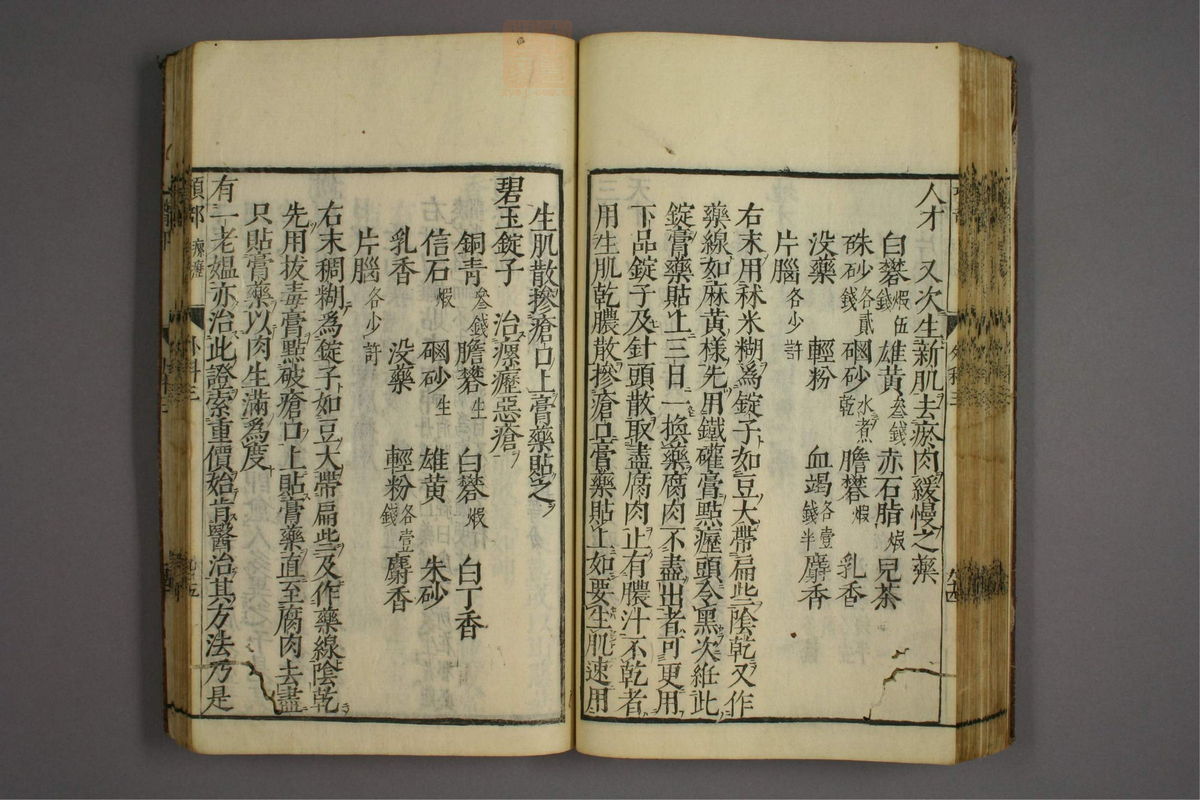 人才　又次生新肌去瘀肉緩慢之藥
白礬煆伍錢　雄黃叁錢　赤石脂煆　兒茶
硃砂各貳錢　硇砂水煮乾　膽礬煆　乳香
沒藥　輕粉　血竭各壹錢半　麝香
片腦各少許
右末用秫米糊為錠子如豆大帶扁些陰乾又作
藥線如麻黃樣先用鐵礶膏點瀝頭令黑次維此
錠膏藥貼上三日一換藥腐肉不盡出者可更用
下品錠子及針頭散取盡腐肉止有膿汁不乾者
用生肌乾膿散摻瘡口膏藥貼上如要生肌速用
生肌散摻瘡口上膏藥貼之
碧玉錠子　治瘰癧惡瘡
銅青叁錢　膽礬生　白礬煆　白丁香
信石煆　硇砂生　雄黃　朱砂
乳香　沒藥　輕粉各壹錢　麝香
片腦各少許
右末稠糊為錠子如豆大帶扁些及作藥線陰乾
先用拔毒膏點破瘡口上貼膏藥直至腐肉去盡
只貼膏藥以肉生滿為度
有一老媼亦治此證索重價始肯醫治其方法乃是
項部　瘰癧　外科三